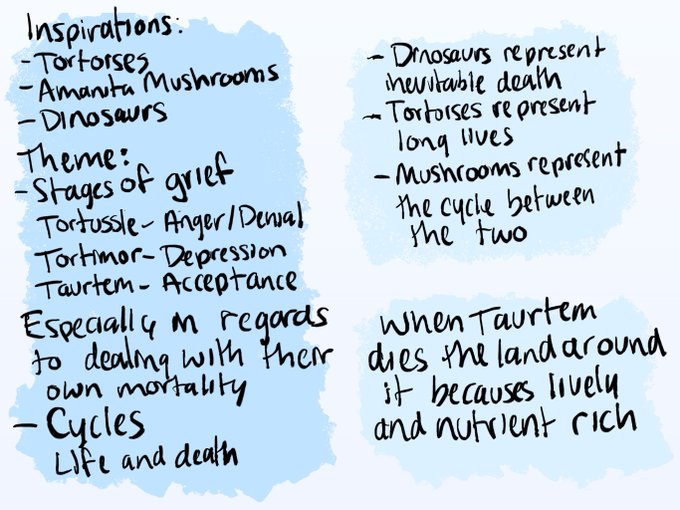 Inspirations:
- Tortorses
- Amanita Mushrooms
- Dinosaurs
Theme:
- Stages of grief
Tortussle - Anger/Denial
Tortimor - Depression
Taurtem - Acceptance
Especially in regards
to dealing with their
own mortality
- Cycles
Life and death
- Dinosaurs represent
inevitable death
- Tortorses represent
long lives
- Mushrooms represent
the cycle between
the two
When Taurtem
dies the land around
it becauses lively
and nutrient rich